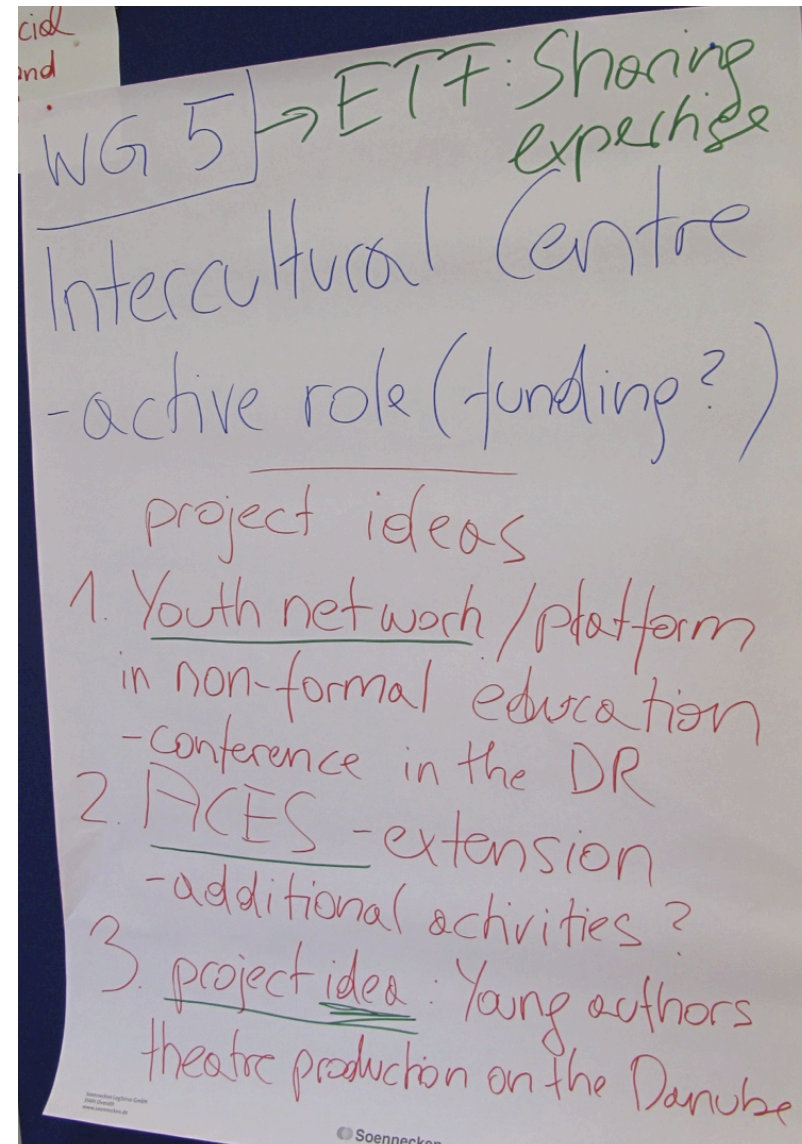 cial
and
WG 5 → ETF: Sharing
expertise
Intercultural Centre
-active role (funding?)
project ideas
1. Youth network / platform
in non-formal education
-conference in the DR
2. ACES -extension
-additional activities?
3. project idea: Young authors
theatre production on the Danube
Soennecken